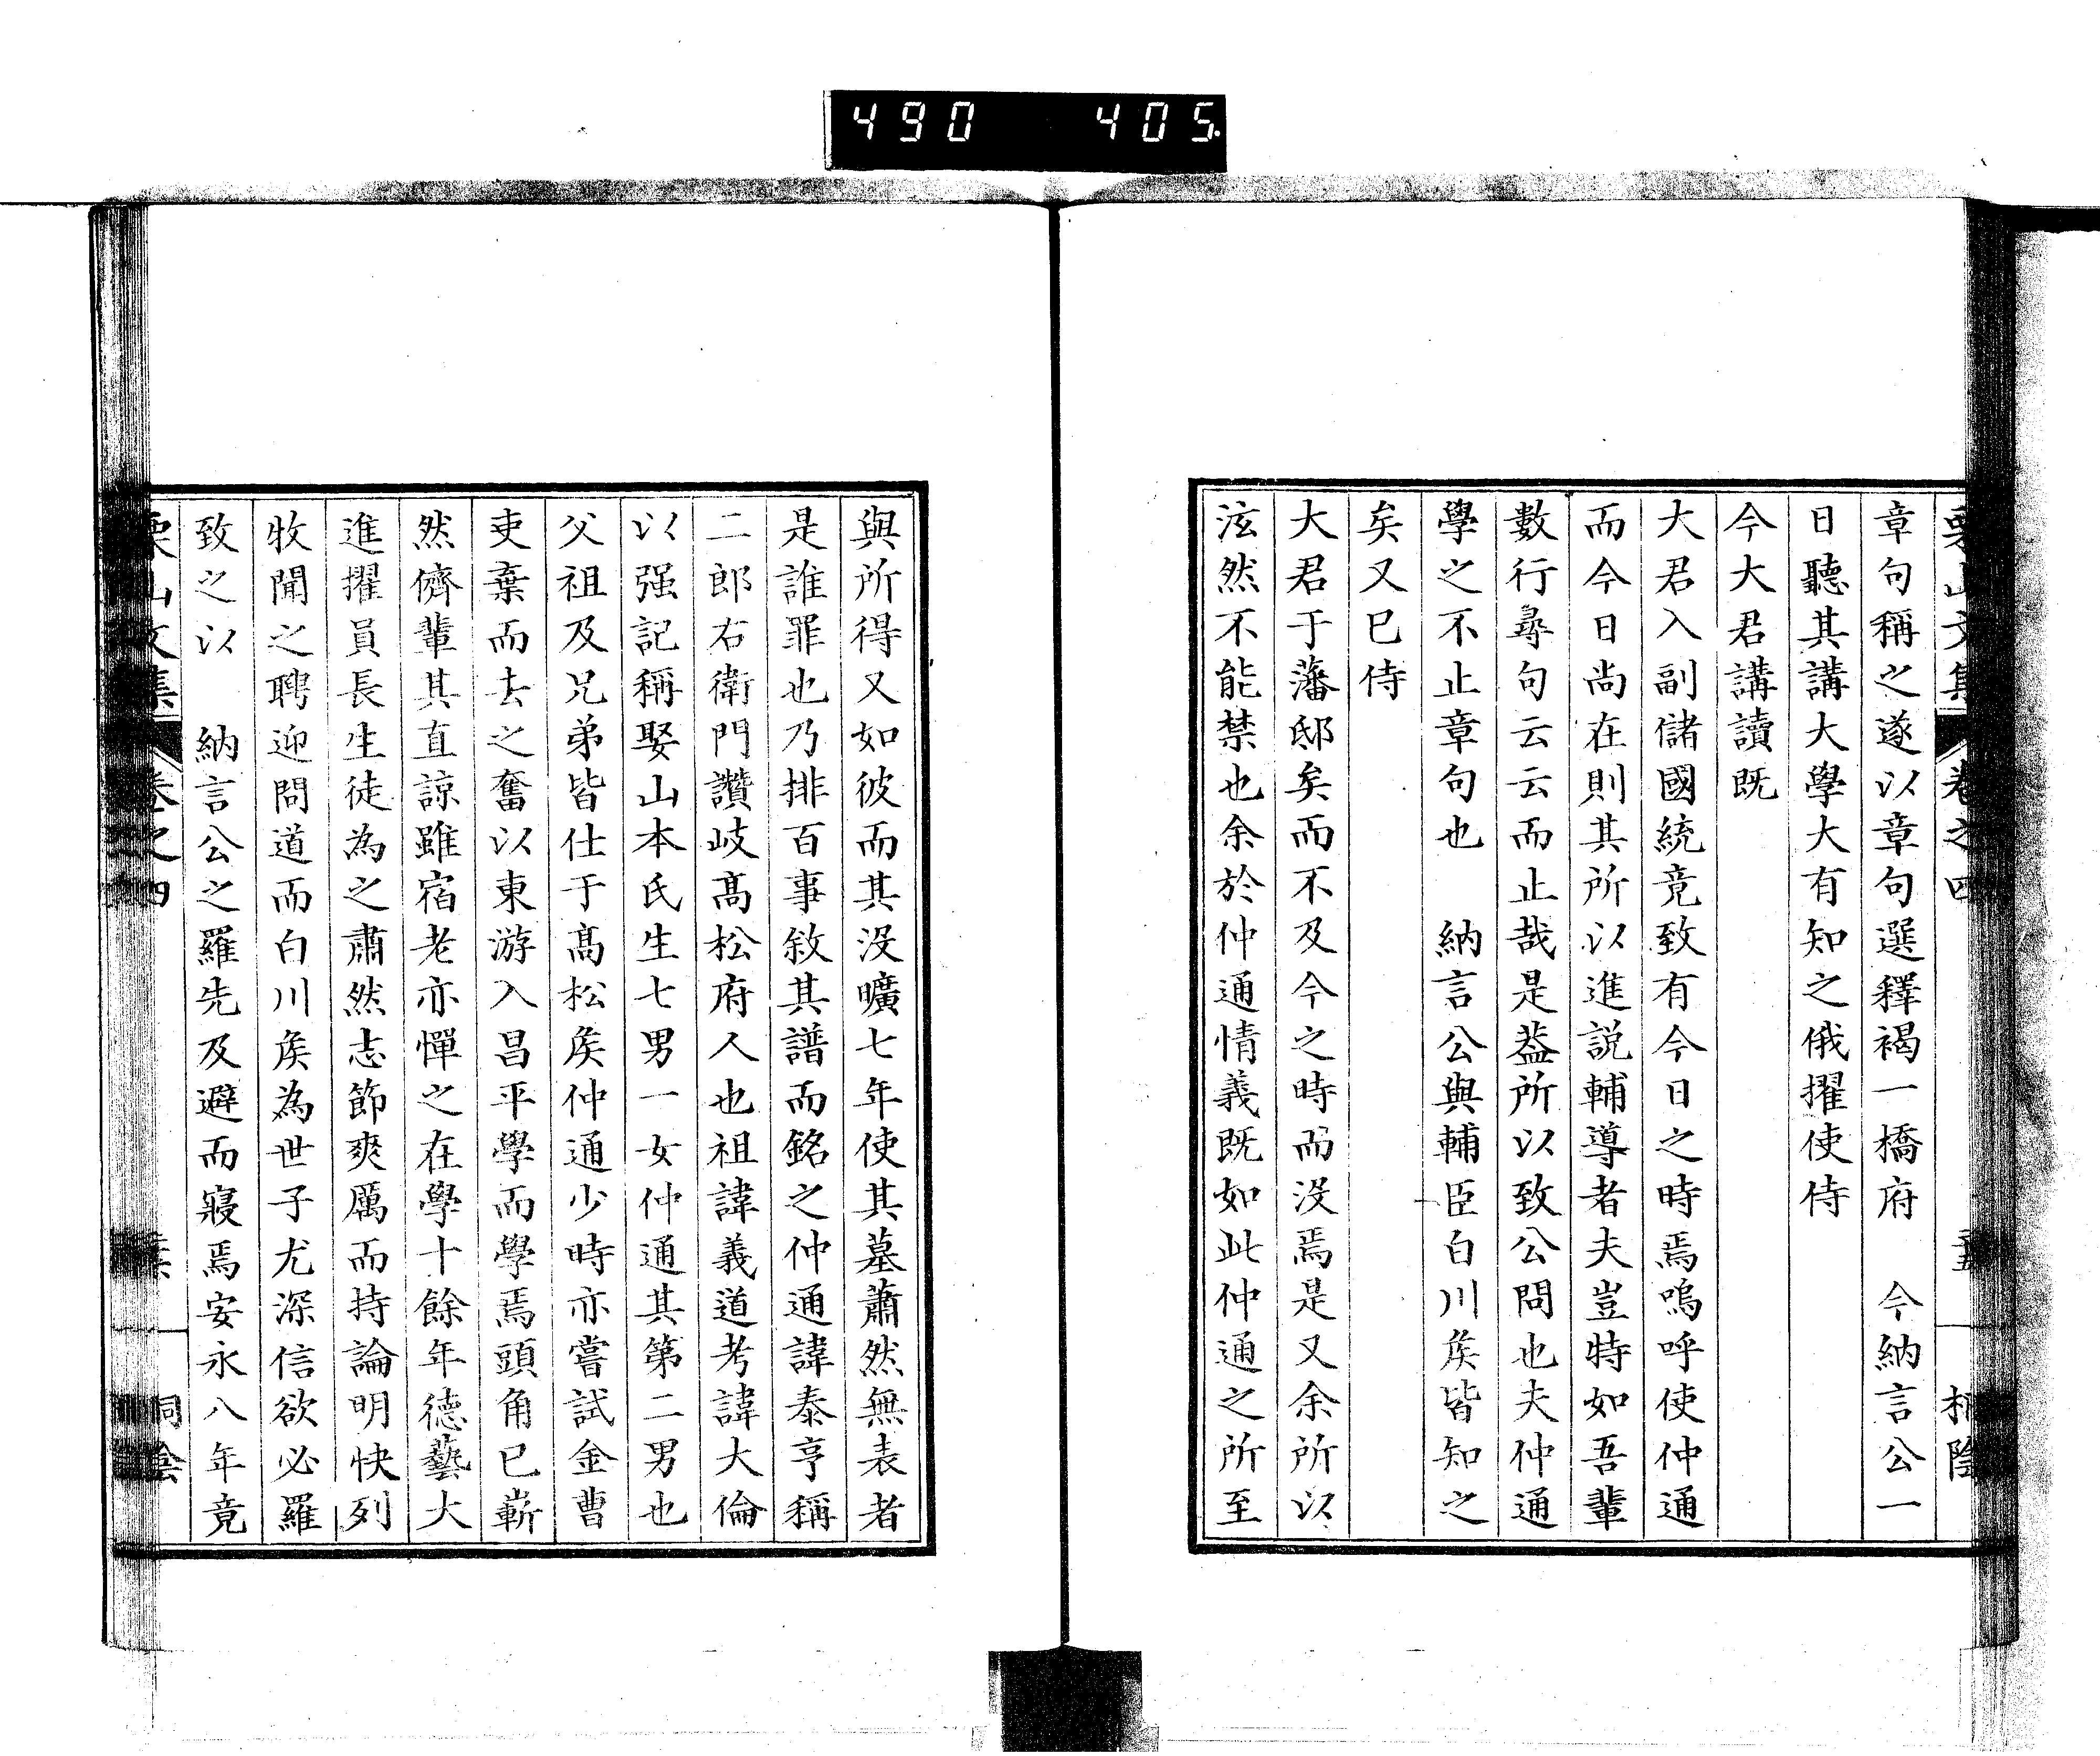 490 405
章句稱之遂以章句選釋褐一橋府　今納言公一
日聽其講大學大有知之俄擢使侍
今大君講讀既
大君入副儲國統竟致有今日之時焉嗚呼使仲通
而今日尚在則其所以進説輔導者夫豈特如吾輩
數行尋句云云而止哉是葢所以致公問也夫仲通
學之不止章句也　納言公與輔臣白川矦皆知之
矣又已侍
大君于藩邸矣而不及今之時而没焉是又余所以
泫然不能禁也余於仲通情義既如此仲通之所至
與所得又如彼而其没曠七年使其墓蕭然無表者
是誰罪也乃排百事敘其譜而銘之仲通諱泰亨稱
二郎右衛門讚岐髙松府人也祖諱義道考諱大倫
以强記稱娶山本氏生七男一女仲通其第二男也
父祖及兄弟皆仕于髙松矦仲通少時亦嘗試金曹
吏棄而去之奮以東游入昌平學而學焉頭角已嶄
然儕輩其直諒雖宿老亦憚之在學十餘年德藝大
進擢員長生徒為之肅然志節爽厲而持論明快列
牧聞之聘迎問道而白川矦為世子尤深信欲必羅
致之以　納言公之羅先及避而寢焉安永八年竟
栗山文集　卷之四